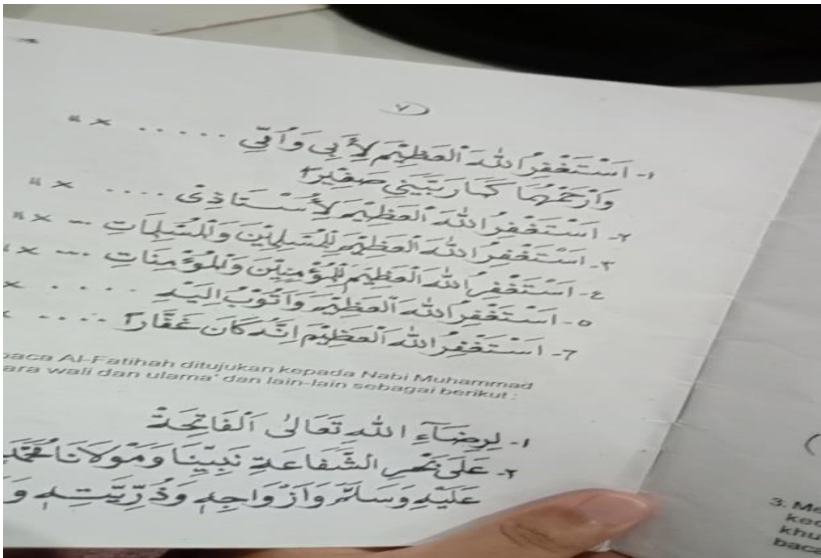 ٧
١- اَسْتَغْفِرُ اللهَ الْعَظِيْمَ لِأَبِى وَأُمِّى ..... × ١١
وَارْحَمْهُمَا كَمَا رَبَّيَنِى صَغِيْرًا
٢- اَسْتَغْفِرُ اللهَ الْعَظِيْمَ لِأُسْتَاذِىْ .... × ١١
٣- اَسْتَغْفِرُ اللهَ الْعَظِيْمَ لِلْمُسْلِمِيْنَ وَالْمُسْلِمَاتِ ... × ١١
٤- اَسْتَغْفِرُ اللهَ الْعَظِيْمَ لِلْمُؤْمِنِيْنَ وَالْمُؤْمِنَاتِ ... ×
٥- اَسْتَغْفِرُ اللهَ الْعَظِيْمَ وَاَتُوْبُ اِلَيْهِ ..... ×
٦- اَسْتَغْفِرُ اللهَ الْعَظِيْمَ اِنَّهُ كَانَ غَفَّارًا ....
baca Al-Fatihah ditujukan kepada Nabi Muhammad
ara wali dan ulama' dan lain-lain sebagai berikut :
١- لِرِضَآءِ اللهِ تَعَالٰى اَلْفَاتِحَةْ
٢- عَلَى الشَّفَاعَةِ نَبِيِّنَا وَمَوْلَانَا مُحَمَّدٍ
عَلَيْهِ وَسَلَّمَ وَاَزْوَاجِهِ وَذُرِّيَّتِهِ وَ
3. Me
ked
khu
baca